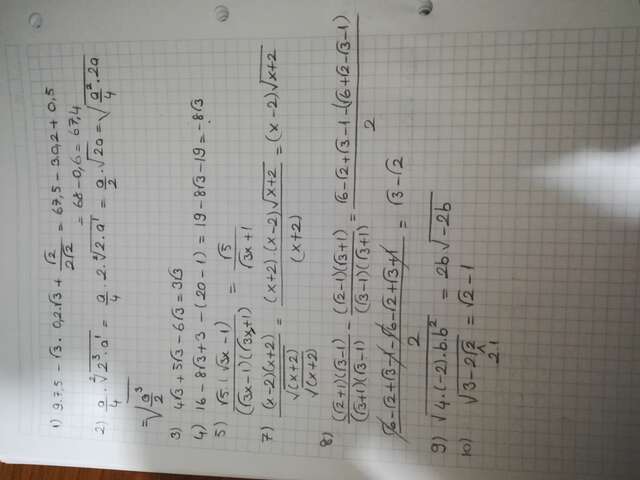 1) 9.7,5 - √3 . 0,2.√3 + √2/2√2 = 67,5 - 3.0,2 + 0,5
= 68 - 0,6 = 67,4
2) a/4 . √2³.a¹ = a/4 . 2 . √2.a¹ = a/2 . √2a = √(a²/4 . 2a)
= √(a³/2)
3) 4√3 + 5√3 - 6√3 = 3√3
4) 16 - 8√3 + 3 - (20 - 1) = 19 - 8√3 - 19 = -8√3
5) √5 . (√3x - 1) / (√3x - 1)(√3x + 1) = √5 / √3x + 1
7) (x-2)(x+2) / √(x+2) = (x+2)(x-2)√x+2 / (x+2) = (x-2)√x+2
√(x+2)
8) (√2+1)(√3-1) / (√3+1)(√3-1) - (√2-1)(√3+1) / (√3-1)(√3+1) = √6 - √2 + √3 - 1 - (√6 + √2 - √3 - 1) / 2
√6 - √2 + √3 - 1 - √6 - √2 + √3 + 1 / 2 = √3 - √2
9) √4.(-2).b.b² = 2b √-2b
10) √3 - 2√2 = √2 - 1
2.1